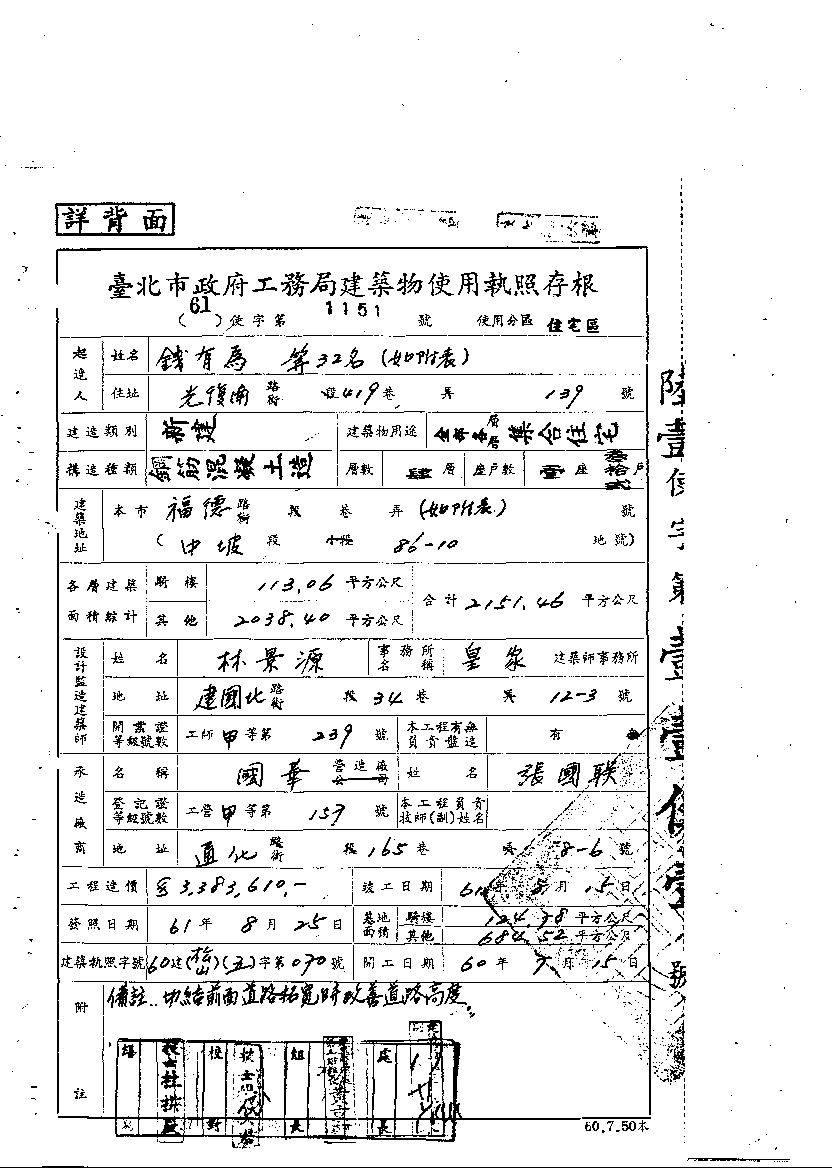 詳背面
臺北市政府工務局建築物使用執照存根
(61)使字第 1151 號 使用分區 住宅區
起造人 姓名 錢有為 等32名(如附表)
住址 光復南路街 段419巷 弄 139 號
建造類別 新建 建築物用途 全部各層層集合住宅
構造種類 鋼筋混凝土造 層數 肆層 座戶數 座 叁拾貳戶
建築地址 本市 福德路街 段 巷 弄(如附表) 號
(中坡段 小段 86-10 地號)
各層建築面積綜計 騎樓 113.06 平方公尺 合計 2151.46 平方公尺
其他 2038.40 平方公尺
設計監造建築師 姓名 林景源 事務所名稱 皇家 建築師事務所
地址 建國北路街 段34巷 弄 12-3 號
開業證等級號數 工師甲等第 239 號 本工程有無負責監造 有
承造廠商 名稱 國華 營造廠公司 姓名 張國联
登記證等級號數 工營甲等第 157 號 本工程負責技師(副)姓名
地址 通化路街 段165巷 弄 8-6 號
工程造價 $3,383,610.- 竣工日期 61年 月15日
發照日期 61年8月25日 基地面積 騎樓 124.98 平方公尺
其他 684.52 平方公尺
建築執照字號 60建(松山)(五)字第070號 開工日期 60年 月15日
附註 備註:切結前面道路拓寬時改善道路高度。
繕 校對 組長 處長
60.7.50本
陸壹使字第壹壹伍壹號